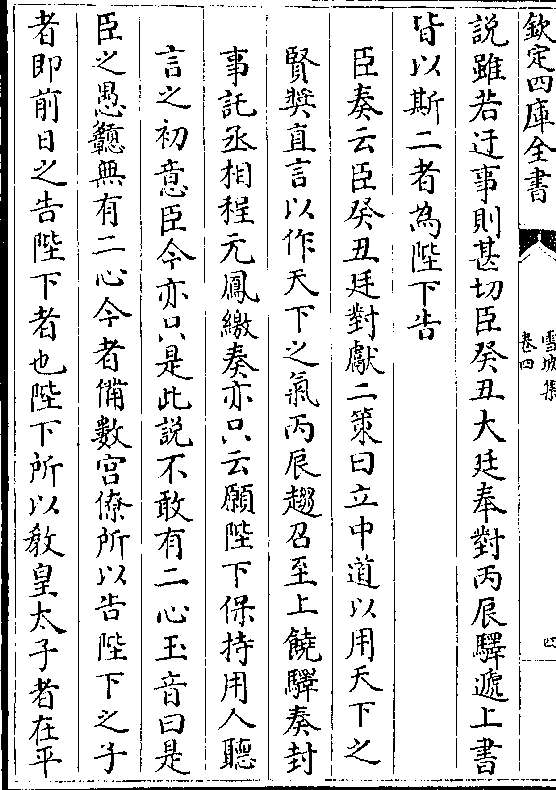 欽定四庫全書
雪坡集
卷四
四
說雖若迂事則甚切臣癸丑大廷奉對丙辰驛遞上書
皆以斯二者為陛下告
臣奏云臣癸丑廷對獻二策曰立中道以用天下之
賢奬直言以作天下之氣丙辰趨召至上饒驛奏封
事託丞相程元鳳繳奏亦只云願陛下保持用人聽
言之初意臣今亦只是此說不敢有二心玉音曰是
臣之愚戇無有二心今者備數宫僚所以告陛下之子
者即前日之告陛下者也陛下所以敎皇太子者在平